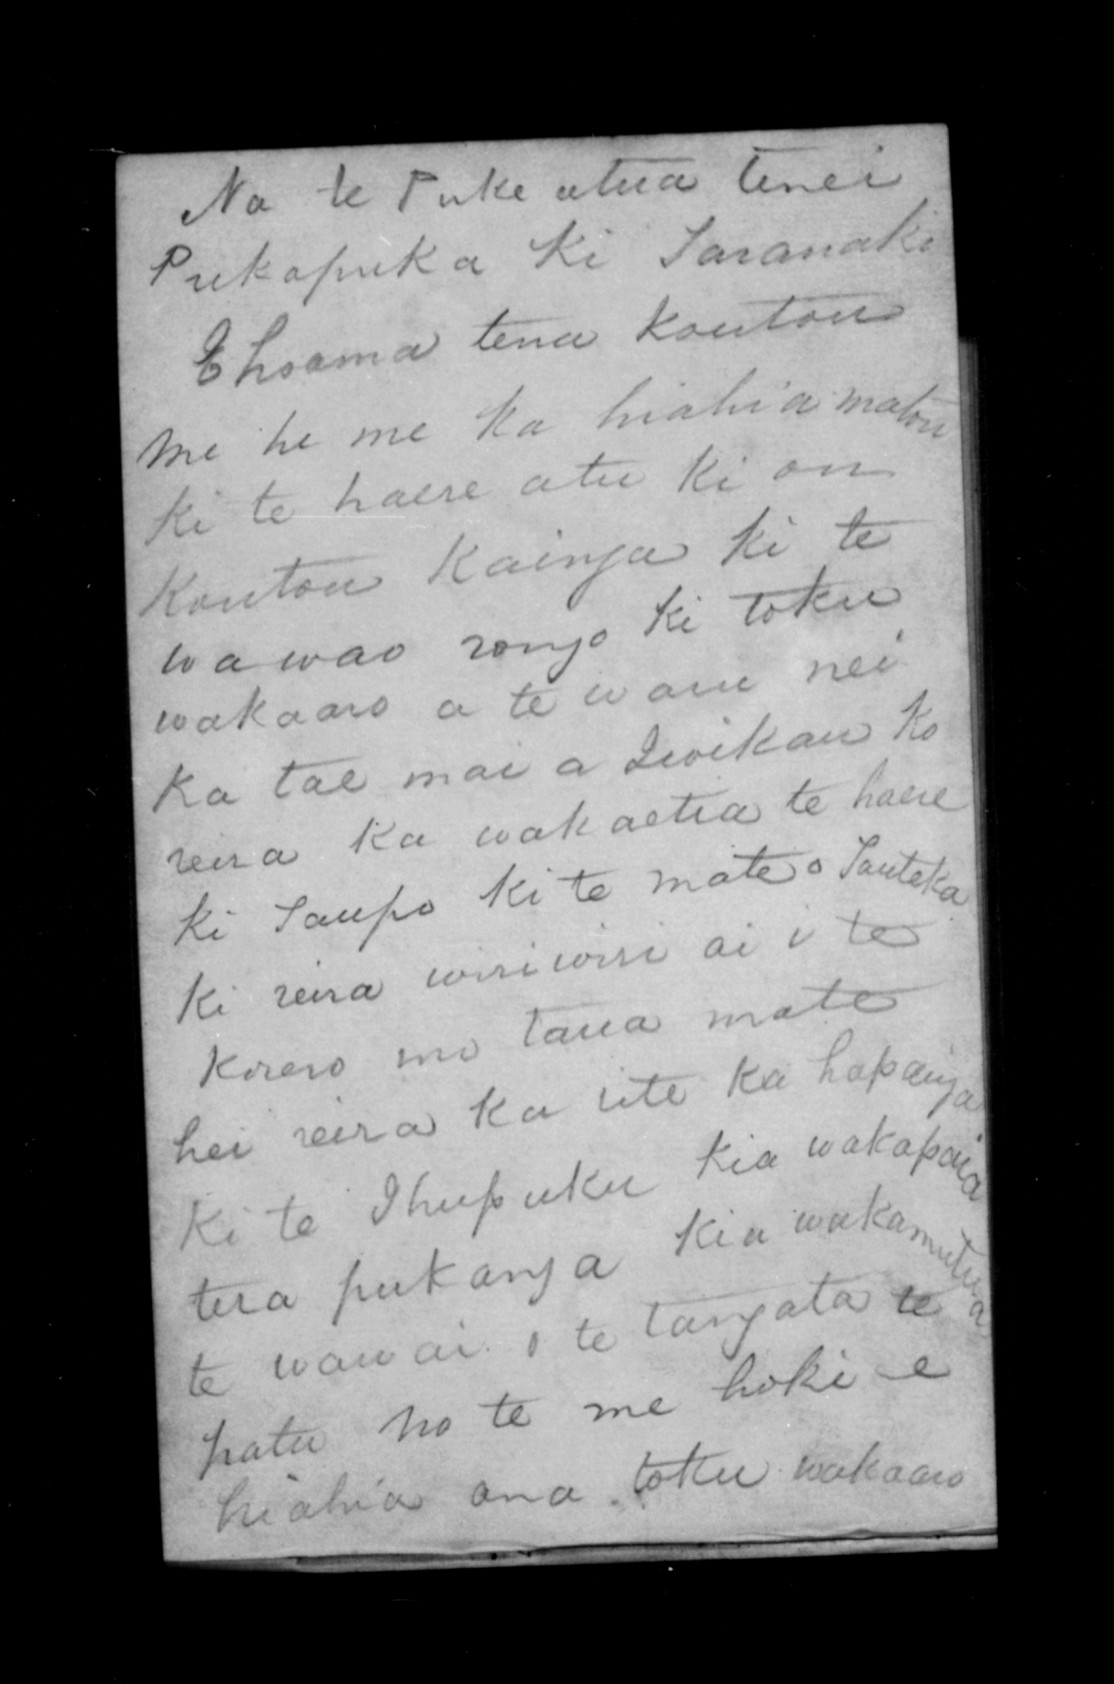 Na te Puke atua tenei
Pukapuka Ki Taranaki
E hoama tena koutou
me he me ka hiahia matou
ki te haere atu ki ou
koutou Kainga ki te
wawao rongo ki toku
wakaaro a te waru nei
ka tae mai a Iwikau ko
reira ka wakaetia te haere
ki Taupo ki te mate o Tauteka
ki reira wiriwiri ai i te
korero mo taua mate
hei reira ka rite ka hapainga
ki te Ihupuku kia wakapaia
tera pukanga kia wakamutua
te wawai o te tangata te
patu no te me hoki e
hiahia ana toku wakaaro